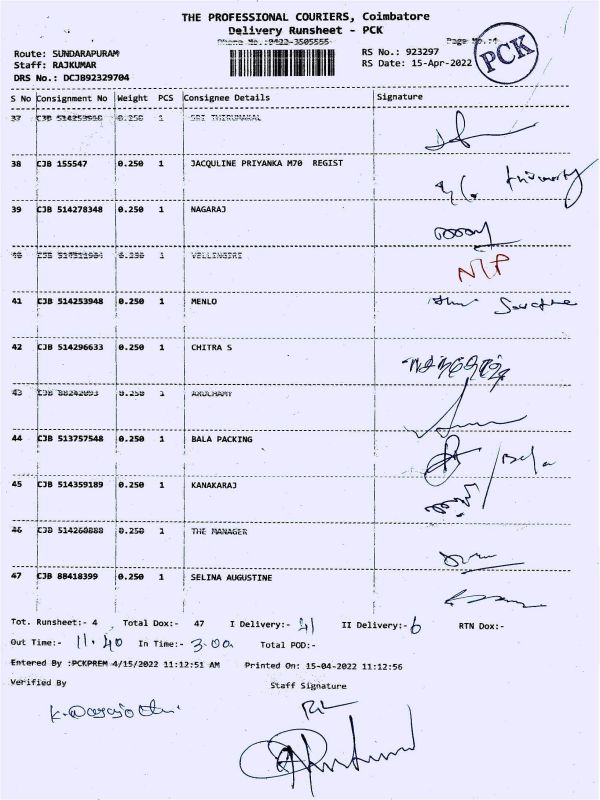 THE PROFESSIONAL COURIERS, Coimbatore
Delivery Runsheet - PCK
Phone No.:0422-3505555 Page No.:4
Route: SUNDARAPURAM RS No.: 923297
Staff: RAJKUMAR RS Date: 15-Apr-2022
PCK
DRS No.: DCJB92329704
S No Consignment No Weight PCS Consignee Details Signature
37 CJB 0.250 1 SRI THIRUMAKAL
38 CJB 155547 0.250 1 JACQULINE PRIYANKA M70 REGIST
39 CJB 514278348 0.250 1 NAGARAJ
40 CJB 0.250 1 VELLINGIRI
41 CJB 514253948 0.250 1 MENLO
42 CJB 514296633 0.250 1 CHITRA S
43 CJB 88242093 0.250 1 ARUCHAMY
44 CJB 513757548 0.250 1 BALA PACKING
Bala
45 CJB 514359189 0.250 1 KANAKARAJ
46 CJB 514260888 0.250 1 THE MANAGER
47 CJB 88418399 0.250 1 SELINA AUGUSTINE
Tot. Runsheet:- 4 Total Dox:- 47 I Delivery:- 41 II Delivery:- 6 RTN Dox:-
Out Time:- 11.40 In Time:- 3.00 Total POD:-
Entered By :PCKPREM 4/15/2022 11:12:51 AM Printed On: 15-04-2022 11:12:56
Verified By Staff Signature